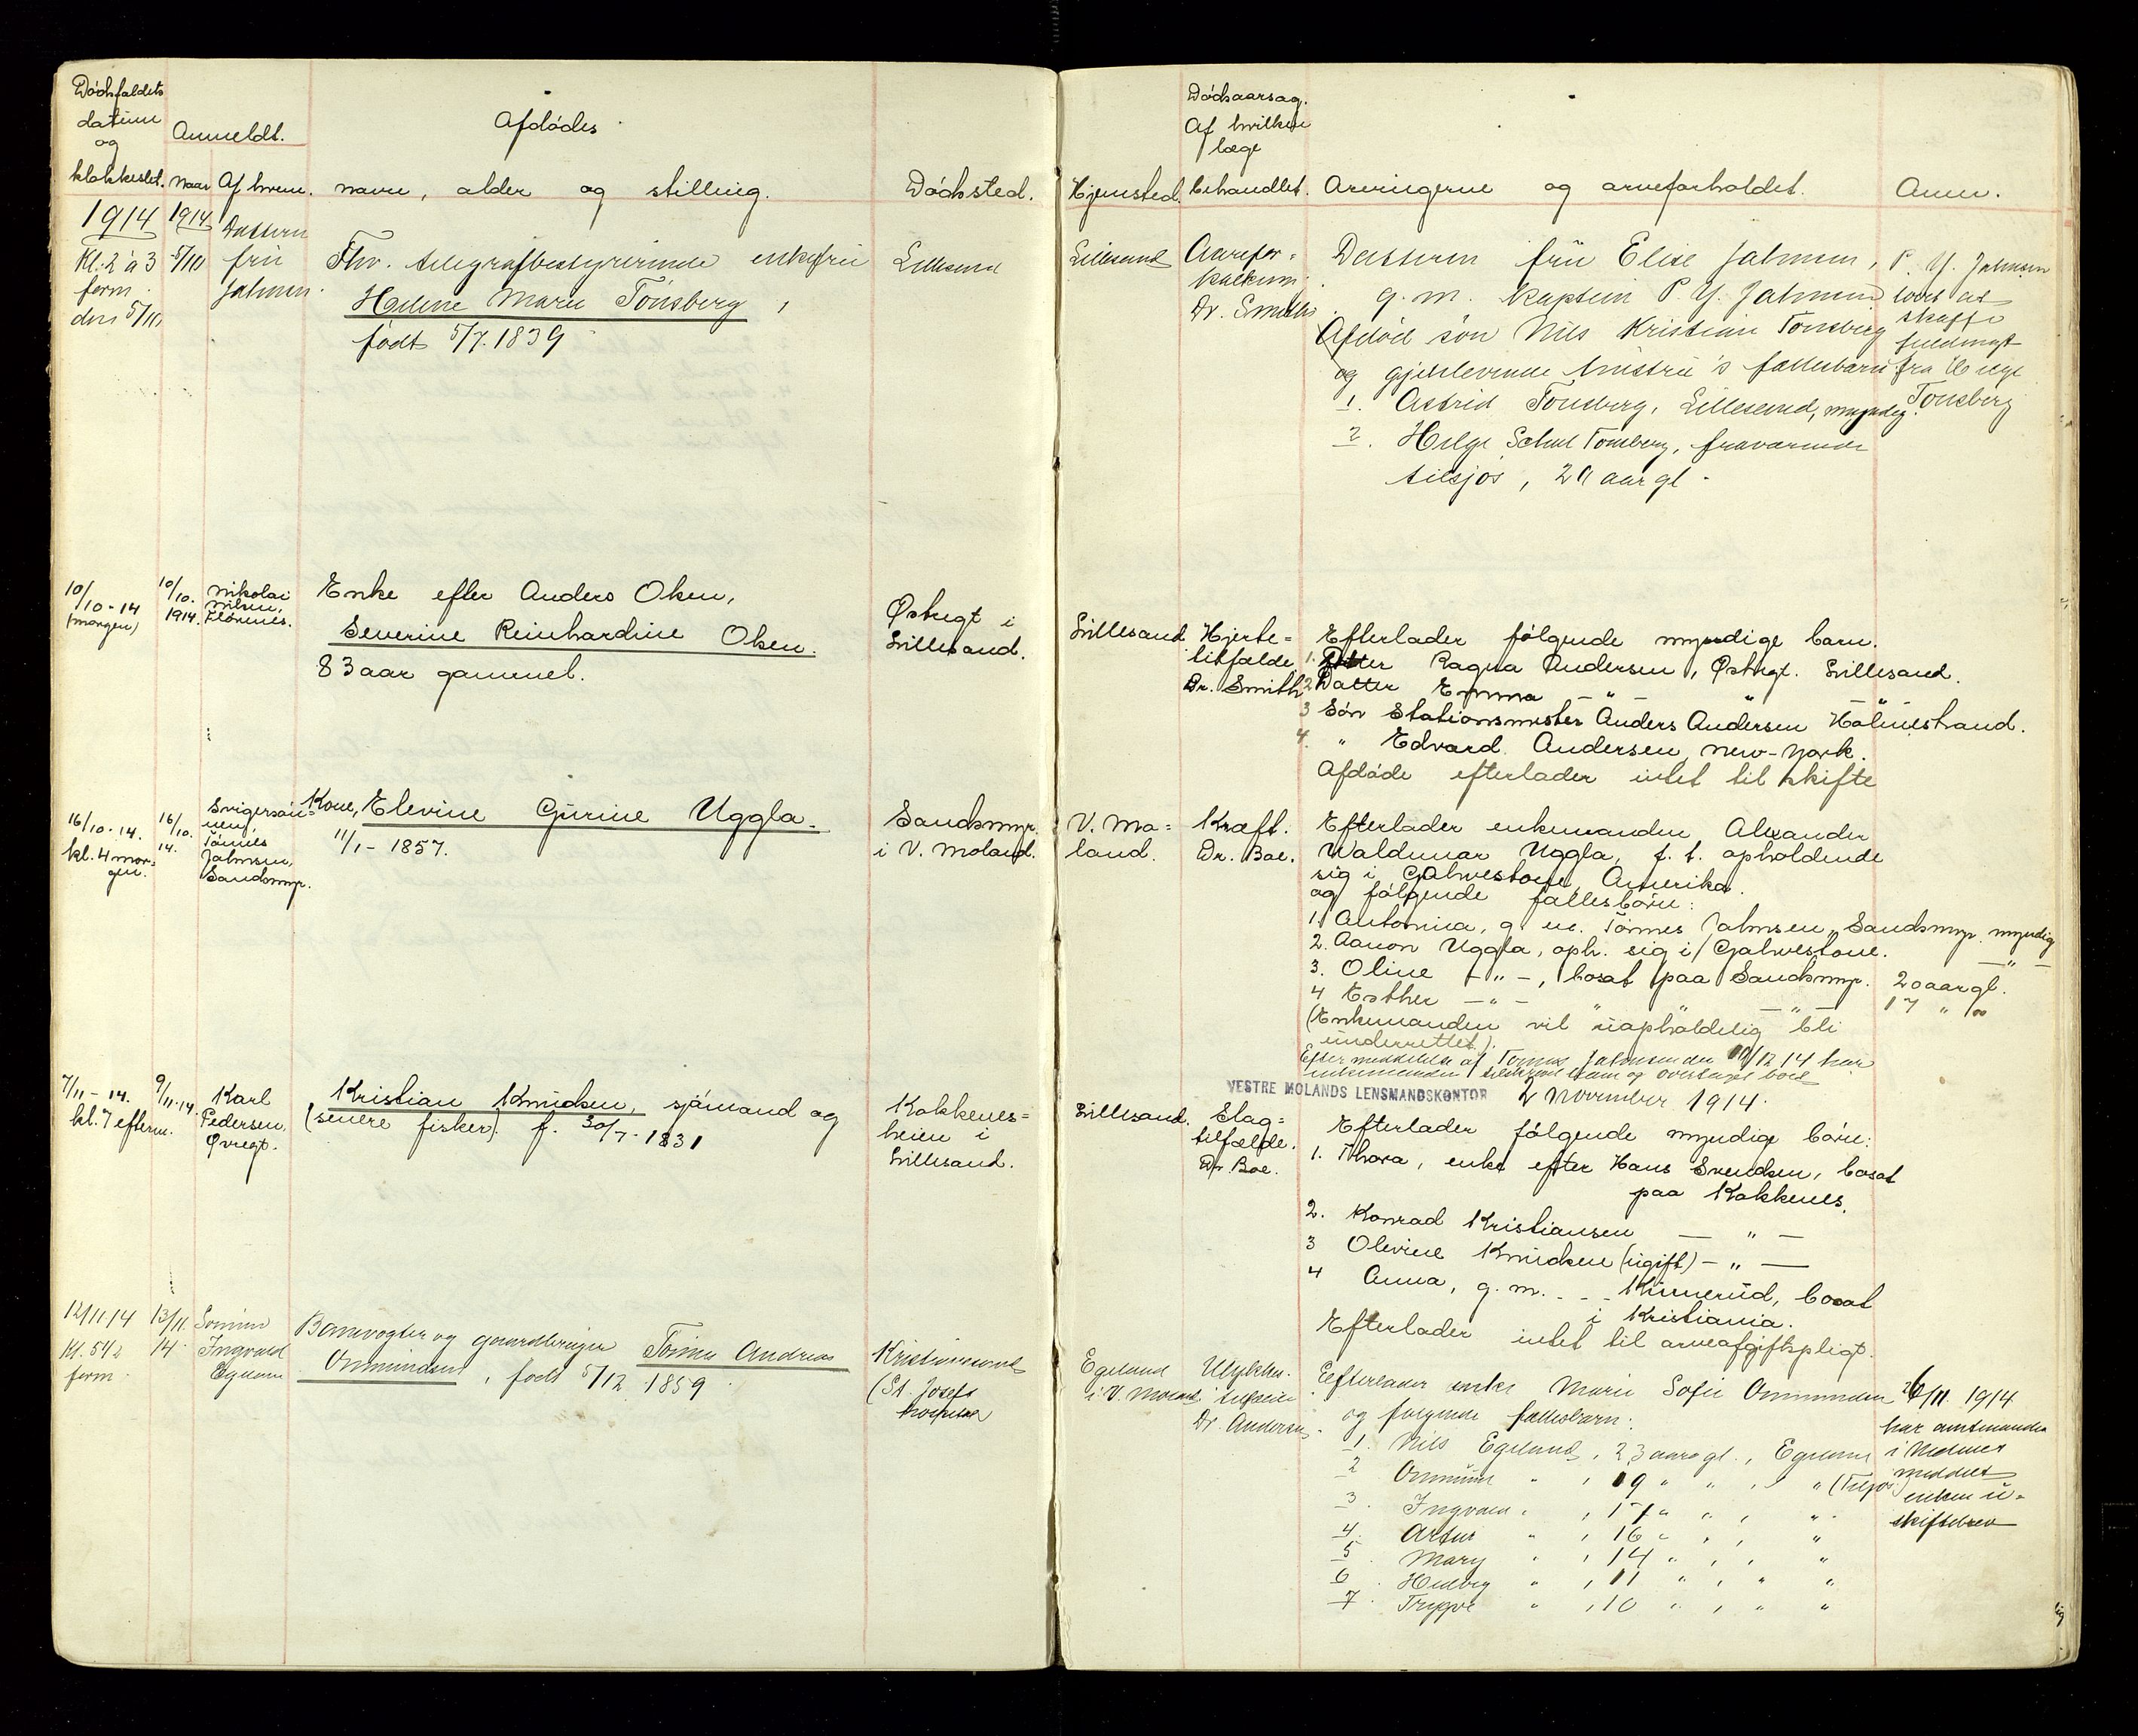 Dødsfaldets
datum
og
klokkeslet.
Anmeldt.
Naar
Af hvem.
Afdødes
navn, alder og stilling.
Dødssted.
Hjemsted.
Dødsaarsag.
Af hvilken
læge
behandlet.
Arvingerne og arveforholdet.
Anm.
1914
Kl. 2 à 3
form.
den 5/10
1914
5/10
Datteren
fru
Jahnsen.
Fhv. telegrafbestyrerinde enkefru
Helene Marie Tönsberg,
født 5/7. 1839
Lillesand
Lillesand
Aarefor=
kalkning.
Dr. Smith
Datteren fru Elise Jahnsen,
g. m. kaptein P. Y. Jahnsen
Afdød søn Nils Kristian Tönsberg
og gjenlevende hustru's fællesbarn
1. Astrid Tönsberg, Lillesand, myndig.
2. Helge Tönsberg, fraværende
tilsjøs, 20 aar gl.
P. Y. Jahnsen
lovet at
skaffe
fuldmagt
fra Helge
Tönsberg
10/10-14
(morgen)
10/10.
1914.
Nikolai
Nilsen,
Enke efter Anders Olsen,
Severine Reinhardine Olsen.
83 aar gammel.
Østregt i
Lillesand.
Lillesand
Hjerte=
tilfælde
Dr. Smith
Efterlader følgende myndige barn.
1. Datter Ragna Andersen, Østregt. Lillesand.
2 Datter Emma — " — " — " —
3 Søn Stationsmester Anders Andersen Holmestrand.
4. " Edvard Andersen, New-York.
Afdøde efterlader intet til skifte
16/10-14.
kl. 4 mor=
gen.
16/10.
14.
Svigersøn=
nen,
Tönnes
Jahnsen,
Sandsmyr.
Kone, Elevine Gurine Uggla.
11/1-1857.
Sandsmyr.
i V. Moland.
V. Mo=
land.
Kræft.
Dr. Boe.
Efterlader enkemanden Alexander
Waldemar Uggla, f. t. opholdende
sig i Galvestone, Amerika.
og følgende fællesbørn:
1. Antonica, g. m. Tönnes Jahnsen, Sandsmyr. myndig
2. Aanon Uggla, oph. sig i Galvestone. — " —
3. Oline — " —, bosat paa Sandsmyr. 20 aar gl.
4 Esther — " — " — " — 17 " "
(Enkemanden vil uopholdelig bli
underrettet).
Efter meddelelse af Tönnes Jahnsen den 12 14 har
enkemanden og overtaget boet
7/11-14.
kl. 7 efterm.
9/11-14.
Karl
Pedersen,
Øvregt.
Kristian Knudsen, sjømand og
(senere fisker). f. 30/7-1831
Kokkenes=
heien i
Lillesand.
VESTRE MOLANDS LENSMANDSKONTOR 2 November 1914.
Lillesand.
Slag=
tilfælde.
Dr Boe.
Efterlader følgende myndige børn:
1. Thora, enke efter Hans Svendsen, bosat
paa Kokkenes.
2. Konrad Kristiansen — " —
3 Olevine Knudsen (ugift) — " —
4 Anna, g. m. - - - Kinnerud, bosat
i Kristiania.
Efterlader intet til arveafgiftspligt.
12/11 14
Kl. 5 1/2
form.
13/11.
14.
Sønnen
Ingvald
Egeland
Banevogter og gaardbruger Tönnes Andreas
Ommundsen, født 5/12 1859
Kristianssand
(St. Josefs
hospital
Egeland
i V. Moland
Ulykkes=
tilfælde
Dr. Andersen
Efterlader enke Marie Sofie Ommundsen
og følgende fællesbarn:
1. Nils Egeland, 23 aar gl., Egeland
2 Ommund " , 19 " " , " (Tilsjøs)
3. Ingvald " , 17 " " , "
4. Artur " , 16 " , , "
5. Mary " , 14 " , , "
6. Hedvig " , 11 " , " "
7. Trygve " , 10 " , " "
26/11. 1914
har amtmanden
i Nedenes
meddelt
enken u=
skiftebrev